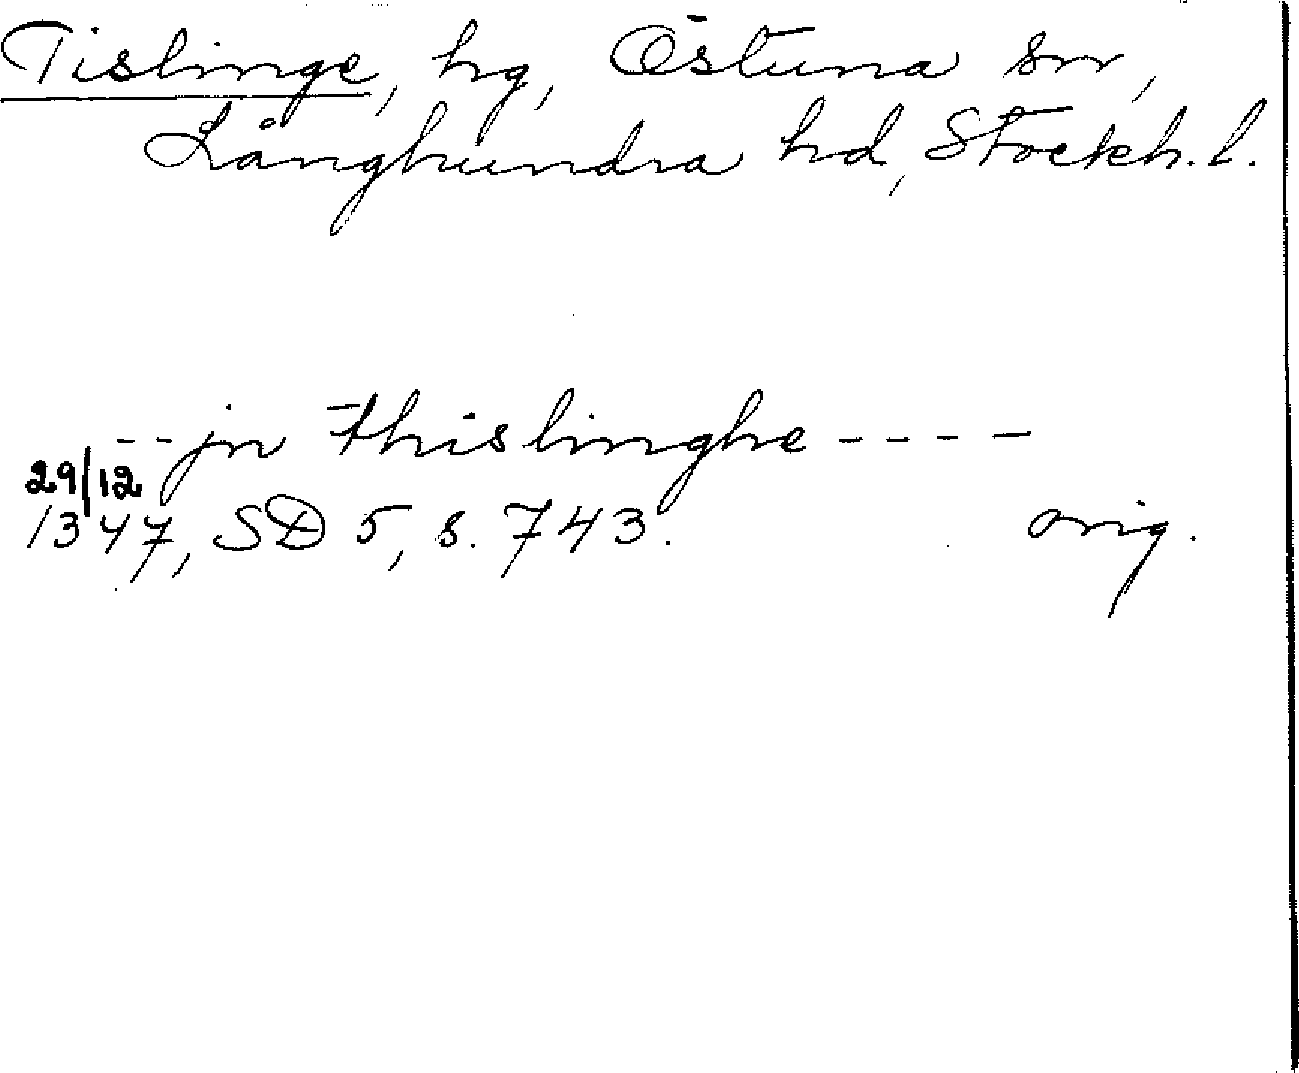 Tislinge, hg, Östuna sn,
Långhundra hd, Stockh. l.
--jn thislinghe----
29/12
1347, SD 5, s. 743. orig.